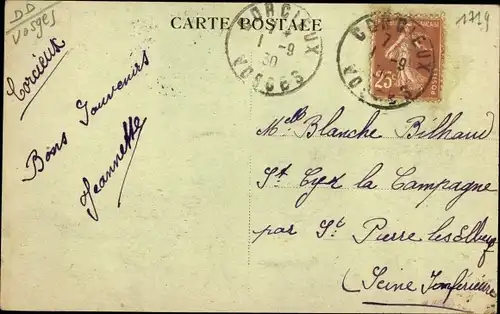 DD
Vosges
CARTE POSTALE
1719
CORCIEUX
1 -9
30
VOSGES
CORCIEUX
1 -9
VOSGES
25c
Corcieux
Bons Souvenirs
Jeannette
Melle Blanche Bilhaud
St Cyr la Campagne
par St Pierre les Elbeuf
(Seine Inférieure